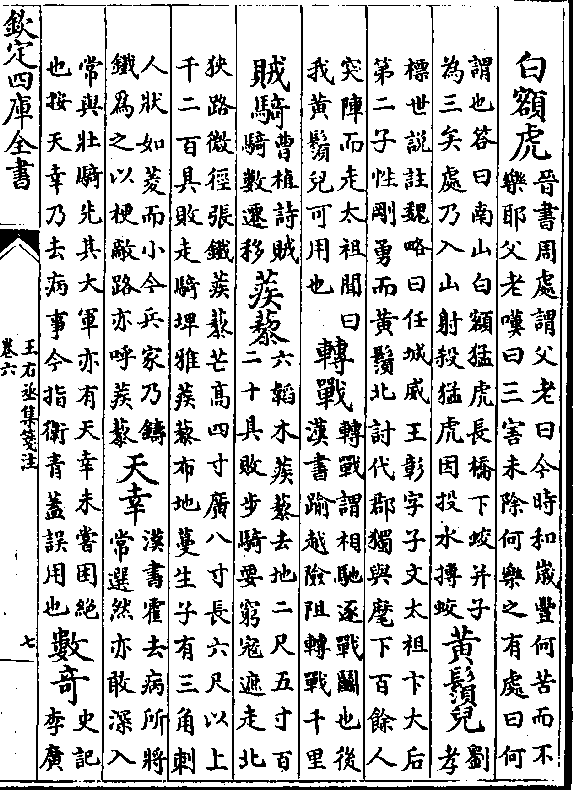 白額虎
晉書周處謂父老曰今時和歲豐何苦而不
樂耶父老嘆曰三害未除何樂之有處曰何
謂也答曰南山白額猛虎長橋下蛟并子
為三矣處乃入山射殺猛虎因投水搏蛟
黃鬚兒
劉
孝
標世說註魏略曰任城威王彰字子文太祖卞大后
第二子性剛勇而黃鬚北討代郡獨與麾下百餘人
突陣而走太祖聞曰
我黃鬚兒可用也
轉戰
轉戰謂相馳逐戰鬭也後
漢書踰越險阻轉戰千里
賊騎
曹植詩賊
騎數遷移
蒺藜
六韜木蒺藜去地二尺五寸百
二十具敗步騎要窮寇遮走北
狹路微徑張鐵蒺藜芒高四寸廣八寸長六尺以上
千二百具敗走騎埤雅蒺藜布地蔓生子有三角刺
人狀如菱而小今兵家乃鑄
鐵為之以梗敵路亦呼蒺藜
天幸
漢書霍去病所將
常選然亦敢深入
常與壯騎先其大軍亦有天幸未嘗困絕
也按天幸乃去病事今指衛青蓋誤用也
數奇
史記
李廣
欽定四庫全書
王右丞集箋注
卷六
七